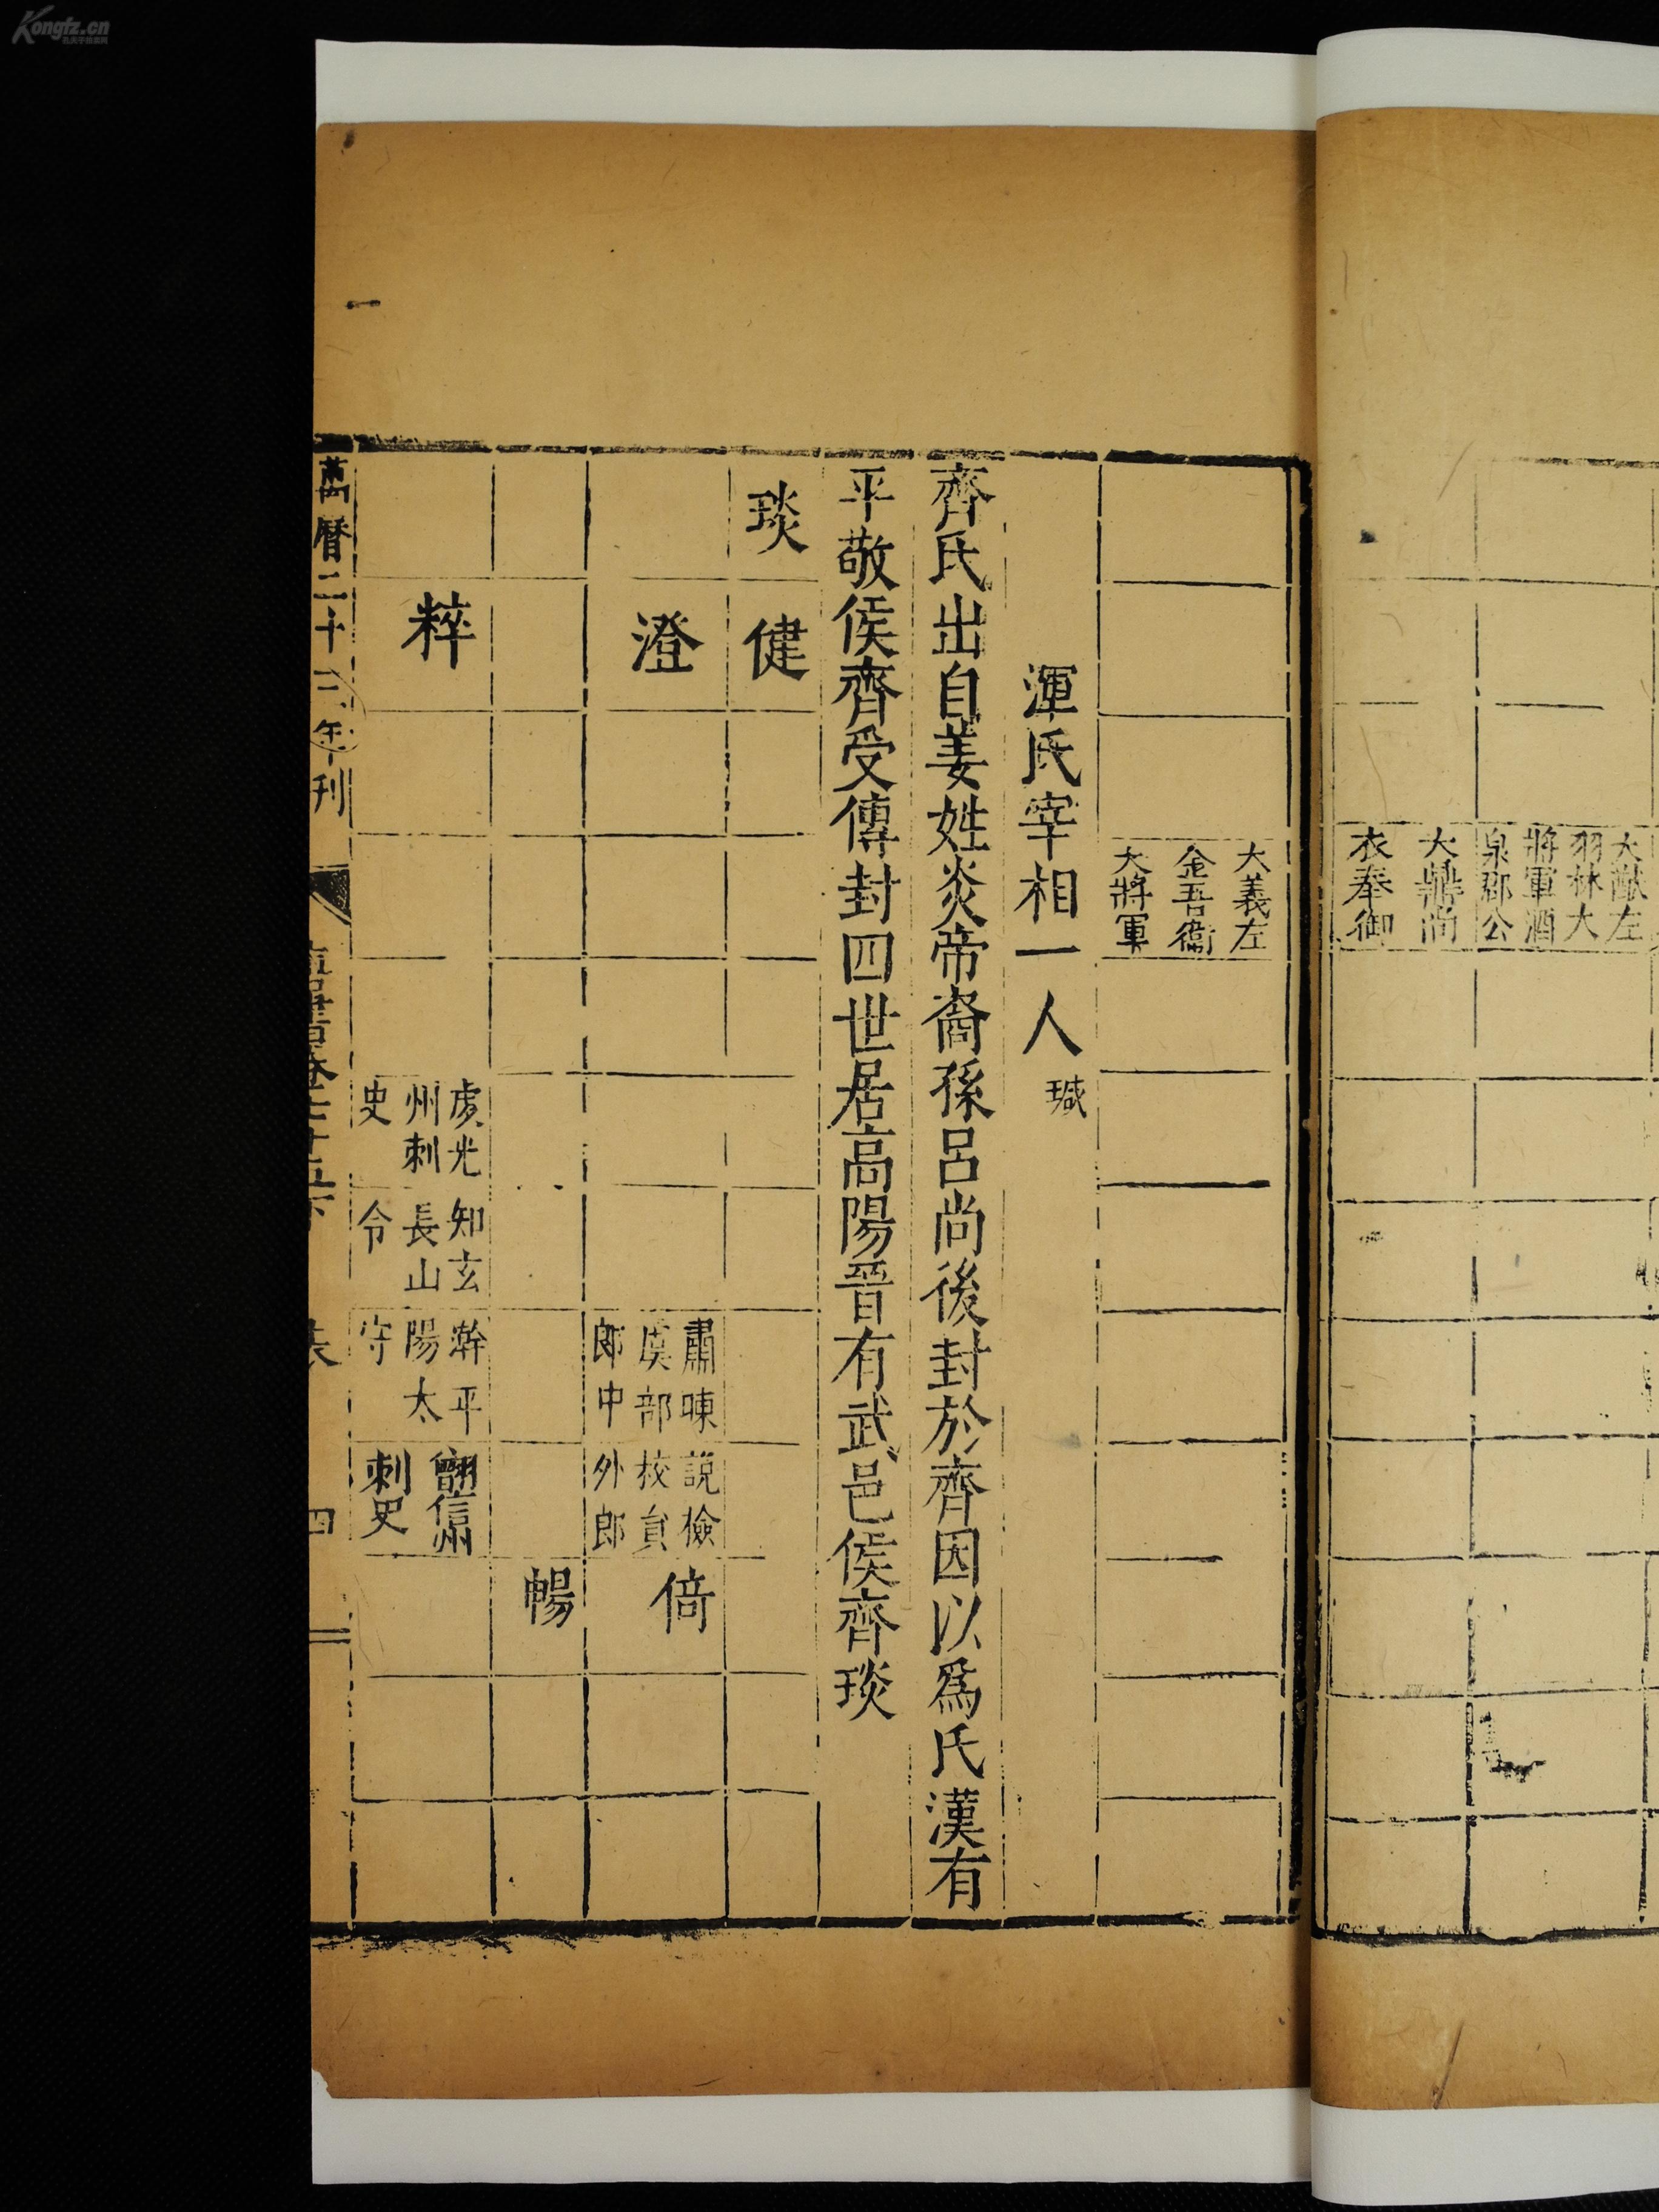 Kongfz.cn
大猷左
羽林大
將軍酒
泉郡公
大鼎尚
衣奉御
大義左
金吾衛
大將軍
渾氏宰相一人 瑊
齊氏出自姜姓炎帝裔孫呂尚後封於齊因以為氏漢有
平敬侯齊受傳封四世居高陽晉有武邑侯齊琰
琰 健
澄
肅㫼
虞部
郎中
說檢
校員
外郎
倚
暢
粹
䖍光
州刺
史
知玄
長山
令
澣平
陽太
守
翾信州
刺史
萬曆二十三年刊
卷七十五下
表
四